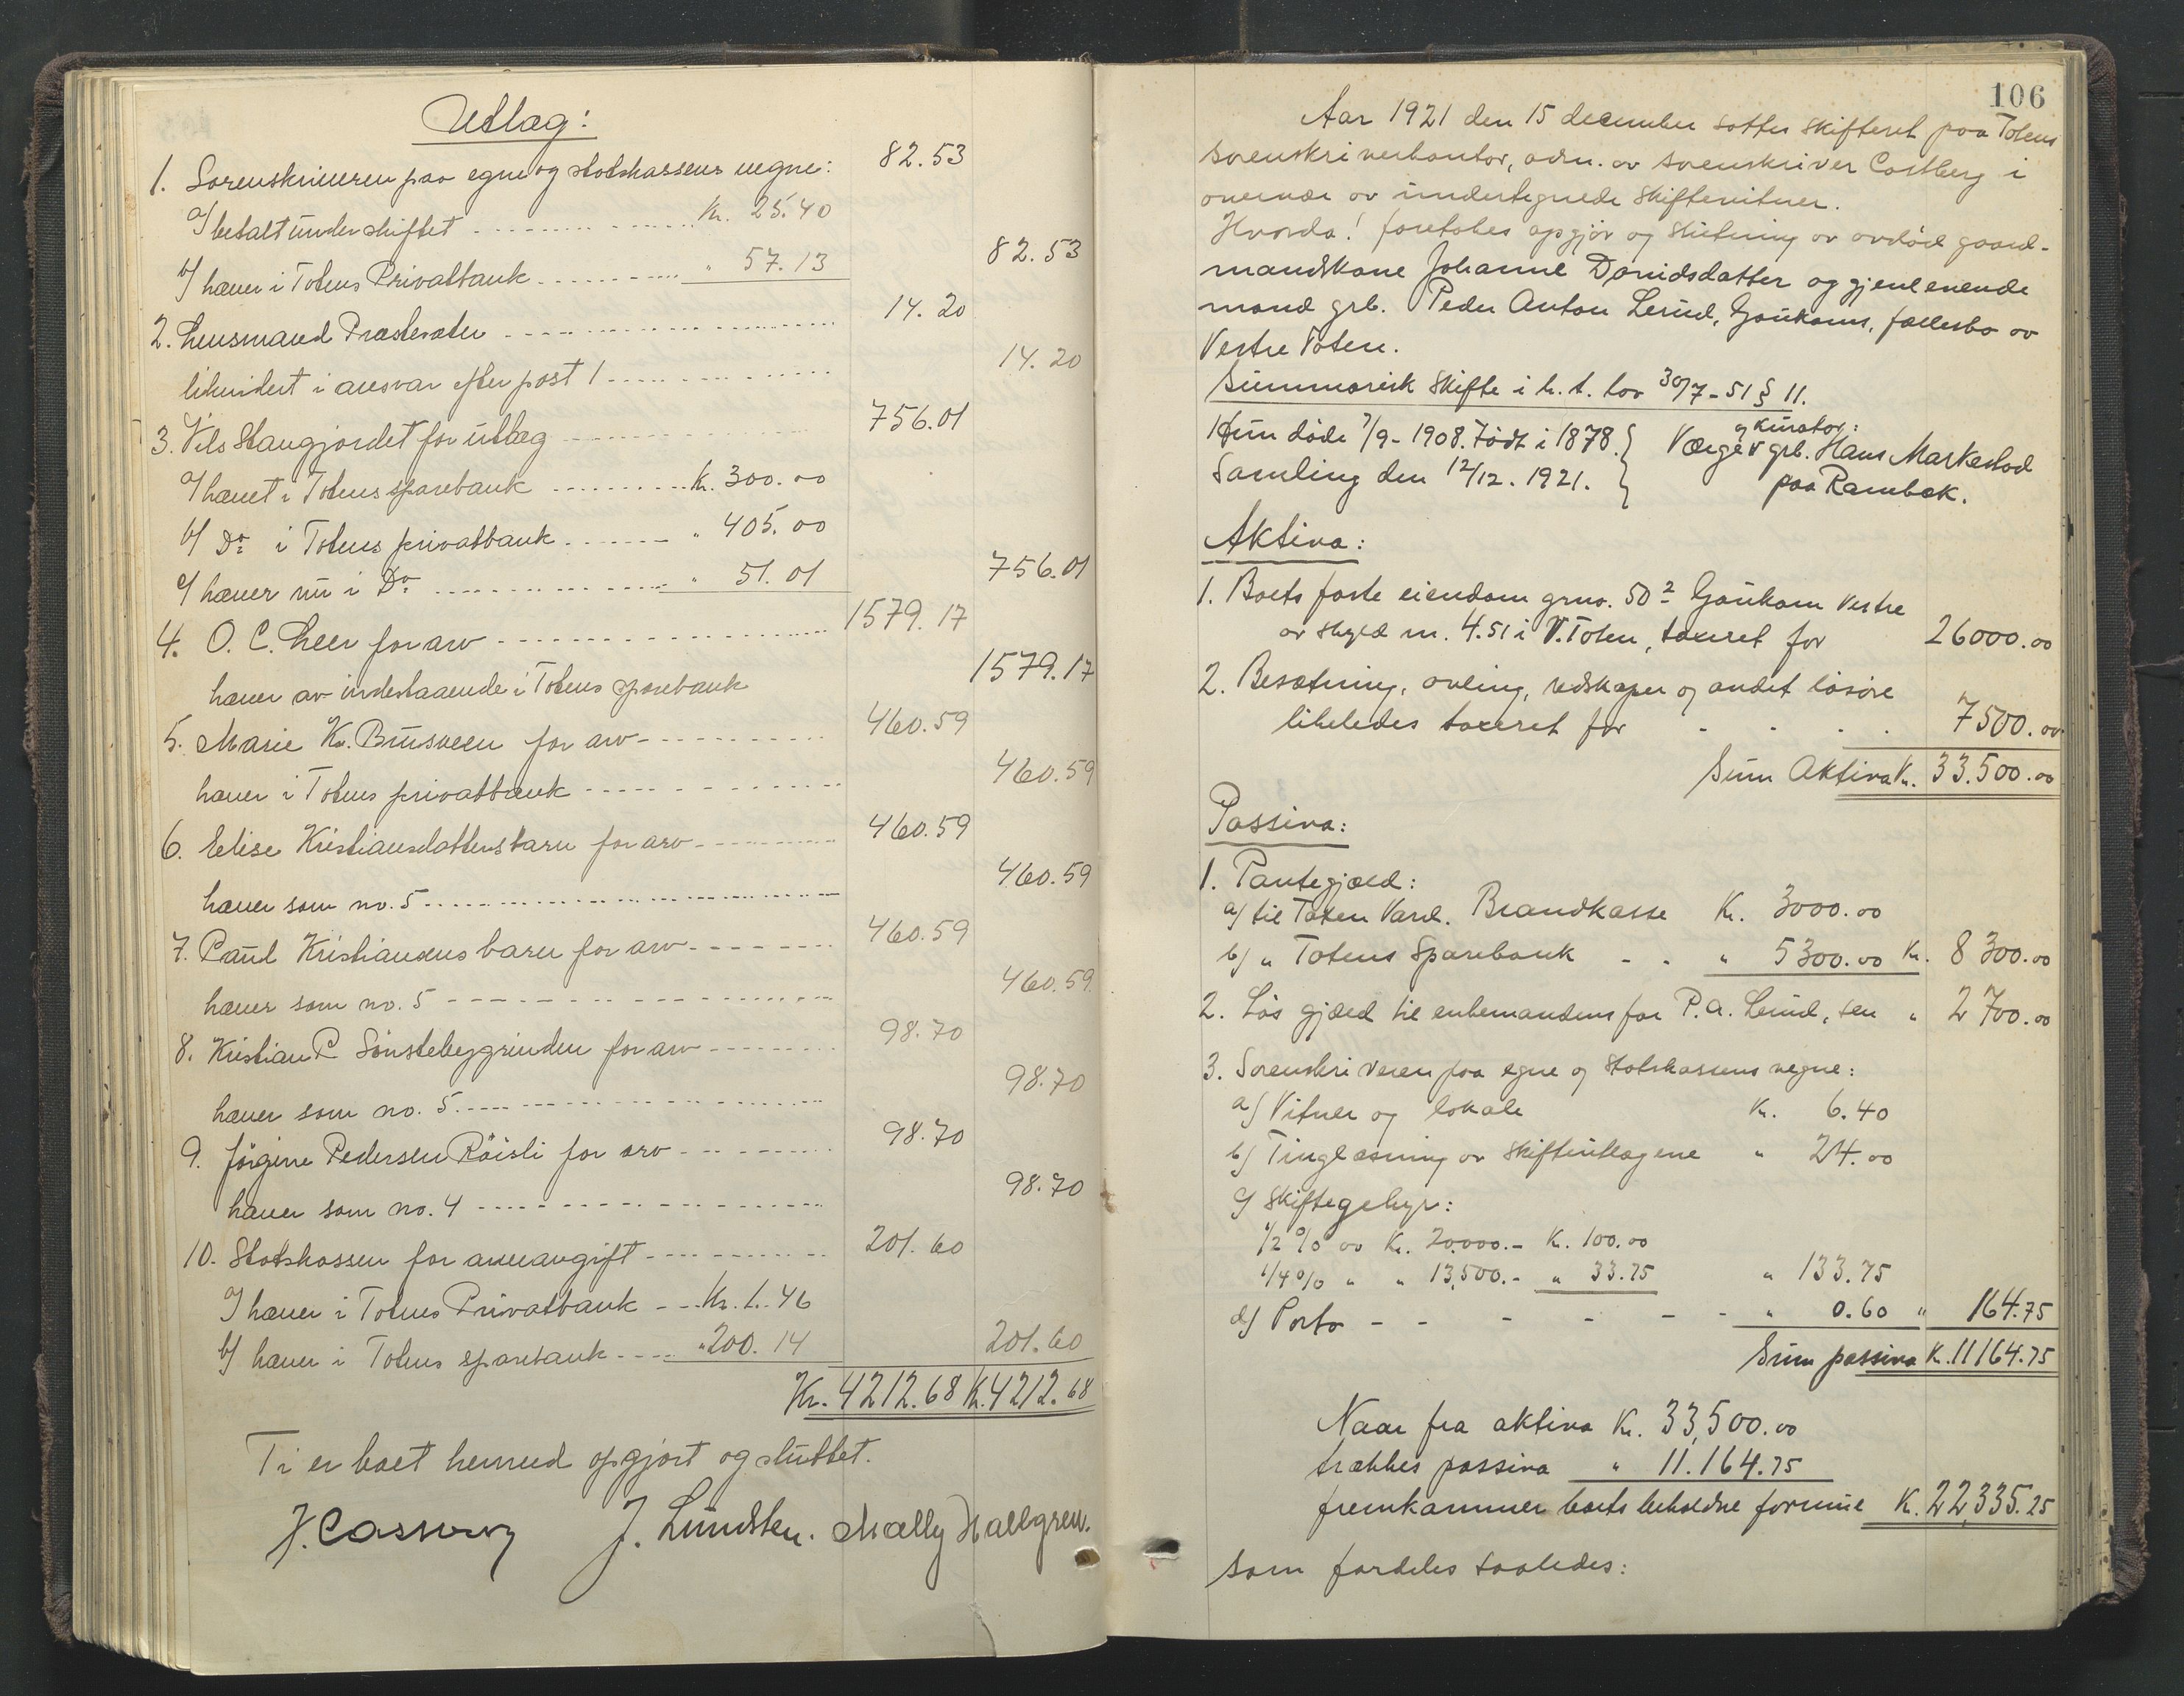 Utlæg:
1. Sorenskriveren paa egne og statskassens vegne: 82.53
a/ betalt under skiftet Kr. 25.40
b/ hæver i Totens Privatbank " 57.13 82.53
2. Lensmand Præsteseter 14.20
likvidert i ansvar efter post 1 14.20
3. Nils Staugjordet for utlæg 756.01
a/ hævet i Totens sparebank Kr. 300.00
b/ Do i Totens privatbank " 405.00
c/ hæver nu i Do " 51.01 756.01
4. O. C. Leer for arv 1579.17
hæver av indestaaende i Totens sparebank 1579.17
5. Marie K. Brusveen for arv 460.59
hæver i Totens privatbank 460.59
6. Elise Kristiansdatters barn for arv 460.59
hæver som no. 5 460.59
7. Paul Kristiansens barn for arv 460.59
hæver som no. 5 460.59
8. Kristian P. Sønstebygrinden for arv 98.70
hæver som no. 5 98.70
9. Jørgine Pedersen Röisli for arv 98.70
hæver som no. 4 98.70
10. Statskassen for arveavgift 201.60
a/ hæver i Totens Privatbank Kr. 1.46
b/ hæver i Totens sparebank " 200.14 201.60
Kr. 4212.68 Kr. 4212.68
Ti er boet hermed opgjort og sluttet.
J. Lundsten. Mally Hallgren.
106
Aar 1921 den 15 december sattes skifteret paa Totens
sorenskriverkontor, adm. av sorenskriver Castberg i
overvær av undertegnede skiftevitner.
Hvorda! foretokes opgjør og slutning av avdøde gaard-
mandskone Johanne Davidsdatter og gjenlevende
mand grb. Peder Anton Lerud, Gaukom, fællesbo av
Vestre Toten.
Summarisk skifte i h. t. lov 30/7-51 § 11.
Hun døde 7/9-1908. Født i 1878. } Værge og kurator: grb. Hans Markestad
Samling den 12/12. 1921. } paa Rambæk.
Aktiva:
1. Boets faste eiendom grno. 50 2 Gaukom vestre
av skyld m. 4.51 i V. Toten, taxeret for 26000.00
2. Besætning, avling, redskaper og andet løsøre
likeledes taxeret for 7500.00
Sum Aktiva Kr. 33.500.00
Passiva:
1. Pantegjæld:
a/ til Toten Vard. Brandkasse Kr. 3000.00
b/ " Totens Sparebank " 5300.00 Kr. 8300.00
2. Løs gjæld til enkemandens far P. A. Lerud, sen " 2700.00
3. Sorenskriveren paa egne og statskassens vegne:
a/ Vitner og lokale Kr. 6.40
b/ Tinglæsning av skifteutlægene " 24.00
c/ Skiftegebyr:
1/2 % av Kr. 20,000.- Kr. 100.00
1/4 % " " 13,500.- " 33.75 " 133.75
d/ Porto " 0.60 " 164.75
Sum passiva Kr. 11164.75
Naar fra aktiva Kr. 33,500.00
trækkes passiva " 11.164.75
fremkommer boets beholdne formue K. 22,335.25
som fordeles saaledes: